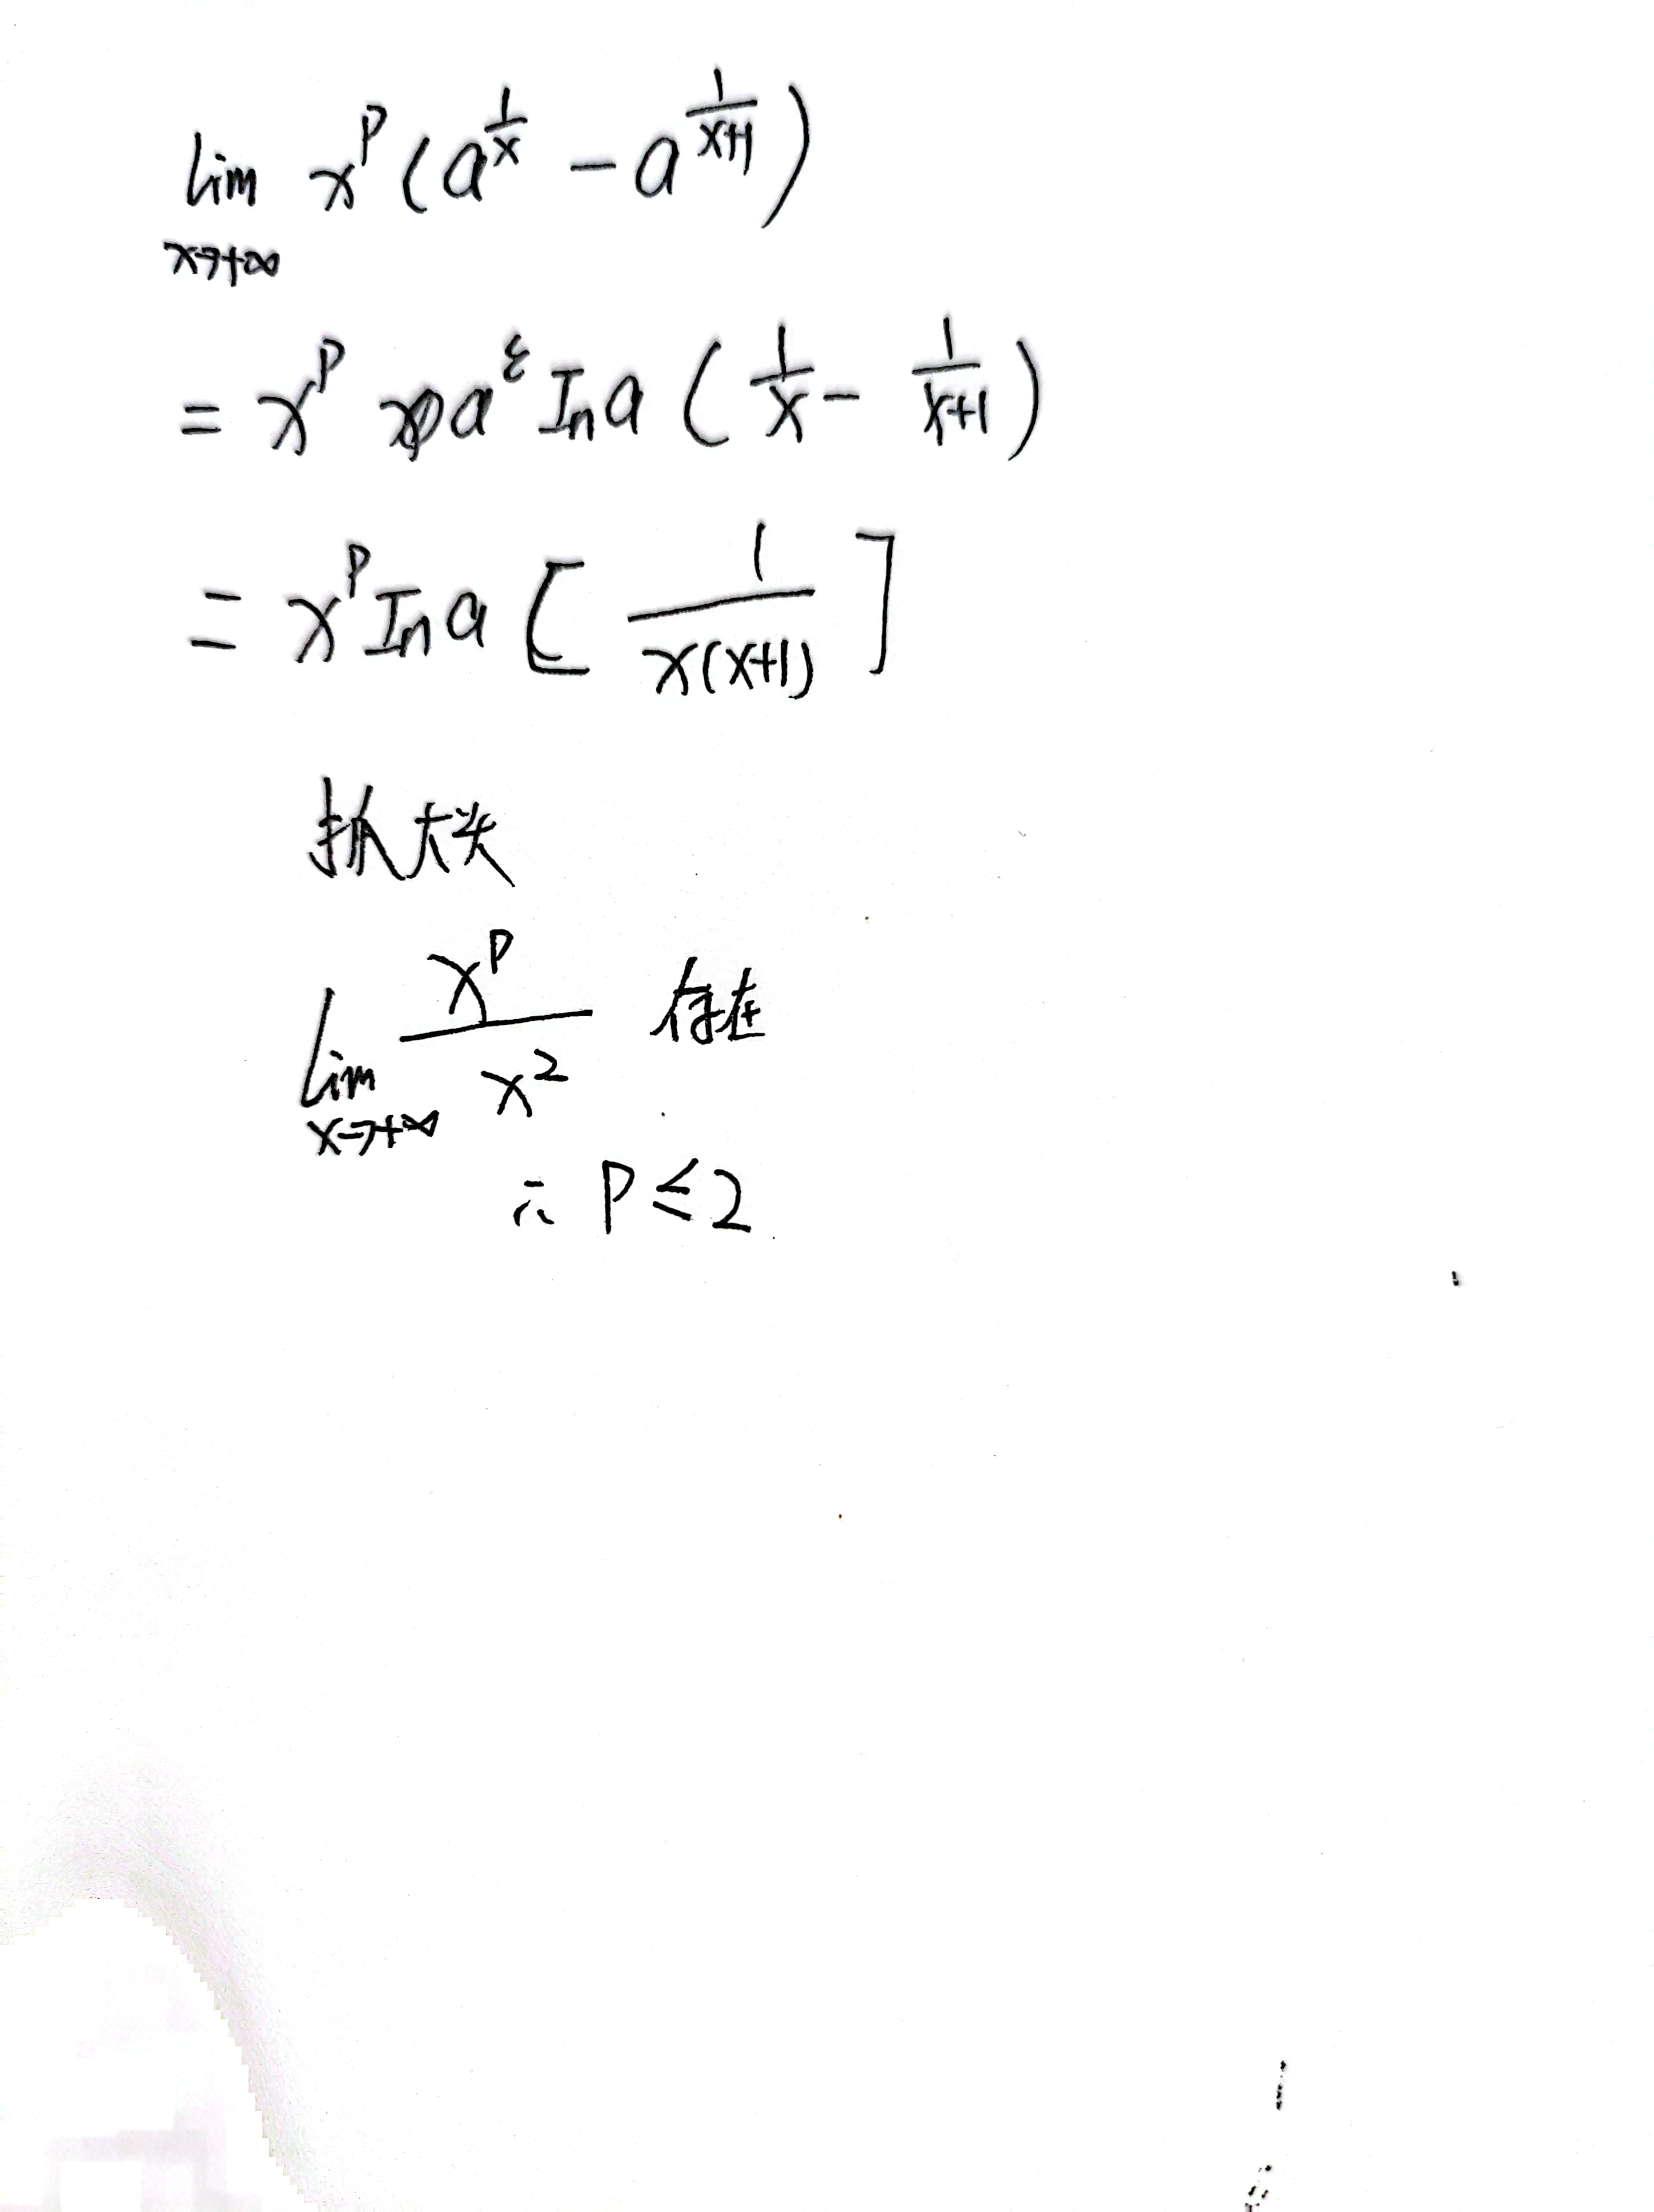 lim x^p (a^{1/x} - a^{1/(x+1)})
x→+∞
= x^p a^ξ ln a (1/x - 1/(x+1))
= x^p ln a [1/(x(x+1))]
抓大头
lim x^p/x^2 存在
x→+∞
∴ P ≤ 2